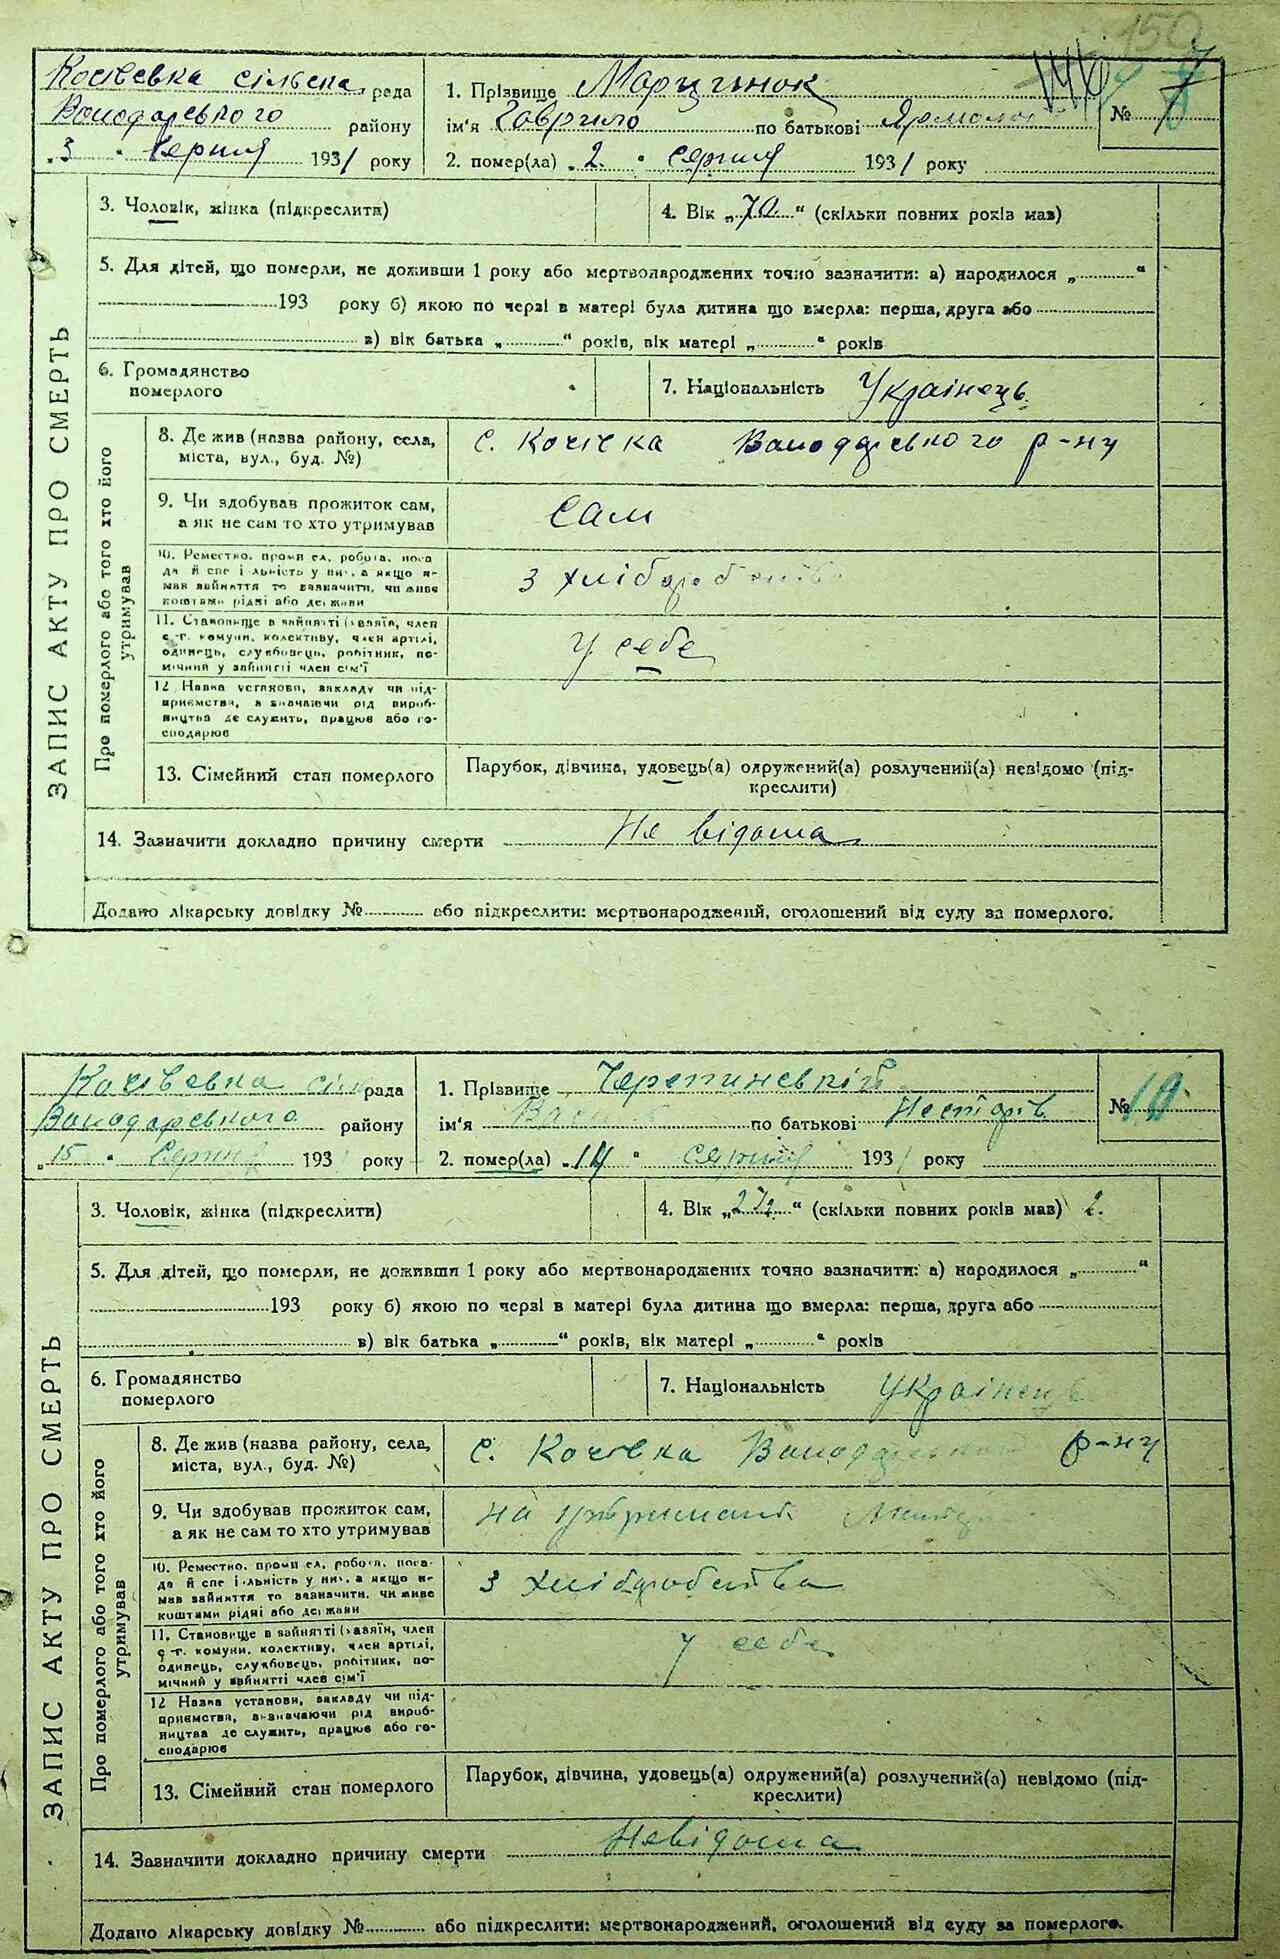 150
146
Косівська сільська рада
Володарського району
„3" Серпня 1931 року
1. Прізвище Марцинюк
ім'я Гаврило по батькові Ярмолов
№ 7
2. помер(ла) „2" серпня 1931 року
ЗАПИС АКТУ ПРО СМЕРТЬ
3. Чоловік, жінка (підкреслити)
4. Вік „70" (скільки повних років мав)
5. Для дітей, що померли, не доживши 1 року або мертвонароджених точно зазначити: а) народилося „ "
193 року б) якою по черзі в матері була дитина що вмерла: перша, друга або
в) вік батька „ " років, вік матері „ " років
6. Громадянство
померлого
7. Національність Українець
Про померлого або того хто його
утримував
8. Де жив (назва району, села,
міста, вул., буд. №)
С. Косівка Володарського р-ну
9. Чи здобував прожиток сам,
а як не сам то хто утримував
Сам
10. Ремество, промисел, робота, поса-
да й спеціяльність у них, а якщо н-
мав зайняття то зазначити, чи живе
коштами рідні або держави
З хліборобства
11. Становище в зайнятті (хазяїн, член
с.-г. комуни, колективу, член артілі,
одинець, службовець, робітник, по-
мічний у зайнятті член сім'ї
у себе
12 Назва установи, закладу чи під-
приємства, визначаючи рід вироб-
ництва де служить, працює або го-
сподарює
13. Сімейний стан померлого
Парубок, дівчина, удовець(а) одружений(а) розлучений(а) невідомо (під-
креслити)
14. Зазначити докладно причину смерти Не відома
Додано лікарську довідку № або підкреслити: мертвонароджений, оголошений від суду за померлого.
рада
Володарського району
„15" Серпня 193 року
1. Прізвище
ім'я по батькові Несторів
№ 10
2. помер(ла) „14" серпня 1931 року
ЗАПИС АКТУ ПРО СМЕРТЬ
3. Чоловік, жінка (підкреслити)
4. Вік „ " (скільки повних років мав) 2.
5. Для дітей, що померли, не доживши 1 року або мертвонароджених точно зазначити: а) народилося „ "
193 року б) якою по черзі в матері була дитина що вмерла: перша, друга або
в) вік батька „ " років, вік матері „ " років
6. Громадянство
померлого
7. Національність Українець
Про померлого або того хто його
утримував
8. Де жив (назва району, села,
міста, вул., буд. №)
С. Косівка Володарського р-ну
9. Чи здобував прожиток сам,
а як не сам то хто утримував
на утриманні
10. Ремество, промисел, робота, поса-
да й спеціяльність у них, а якщо н-
мав зайняття то зазначити, чи живе
коштами рідні або держави
З хліборобства
11. Становище в зайнятті (хазяїн, член
с.-г. комуни, колективу, член артілі,
одинець, службовець, робітник, по-
мічний у зайнятті член сім'ї
у себе
12 Назва установи, закладу чи під-
приємства, визначаючи рід вироб-
ництва де служить, працює або го-
сподарює
13. Сімейний стан померлого
Парубок, дівчина, удовець(а) одружений(а) розлучений(а) невідомо (під-
креслити)
14. Зазначити докладно причину смерти Невідома
Додано лікарську довідку № або підкреслити: мертвонароджений, оголошений від суду за померлого.